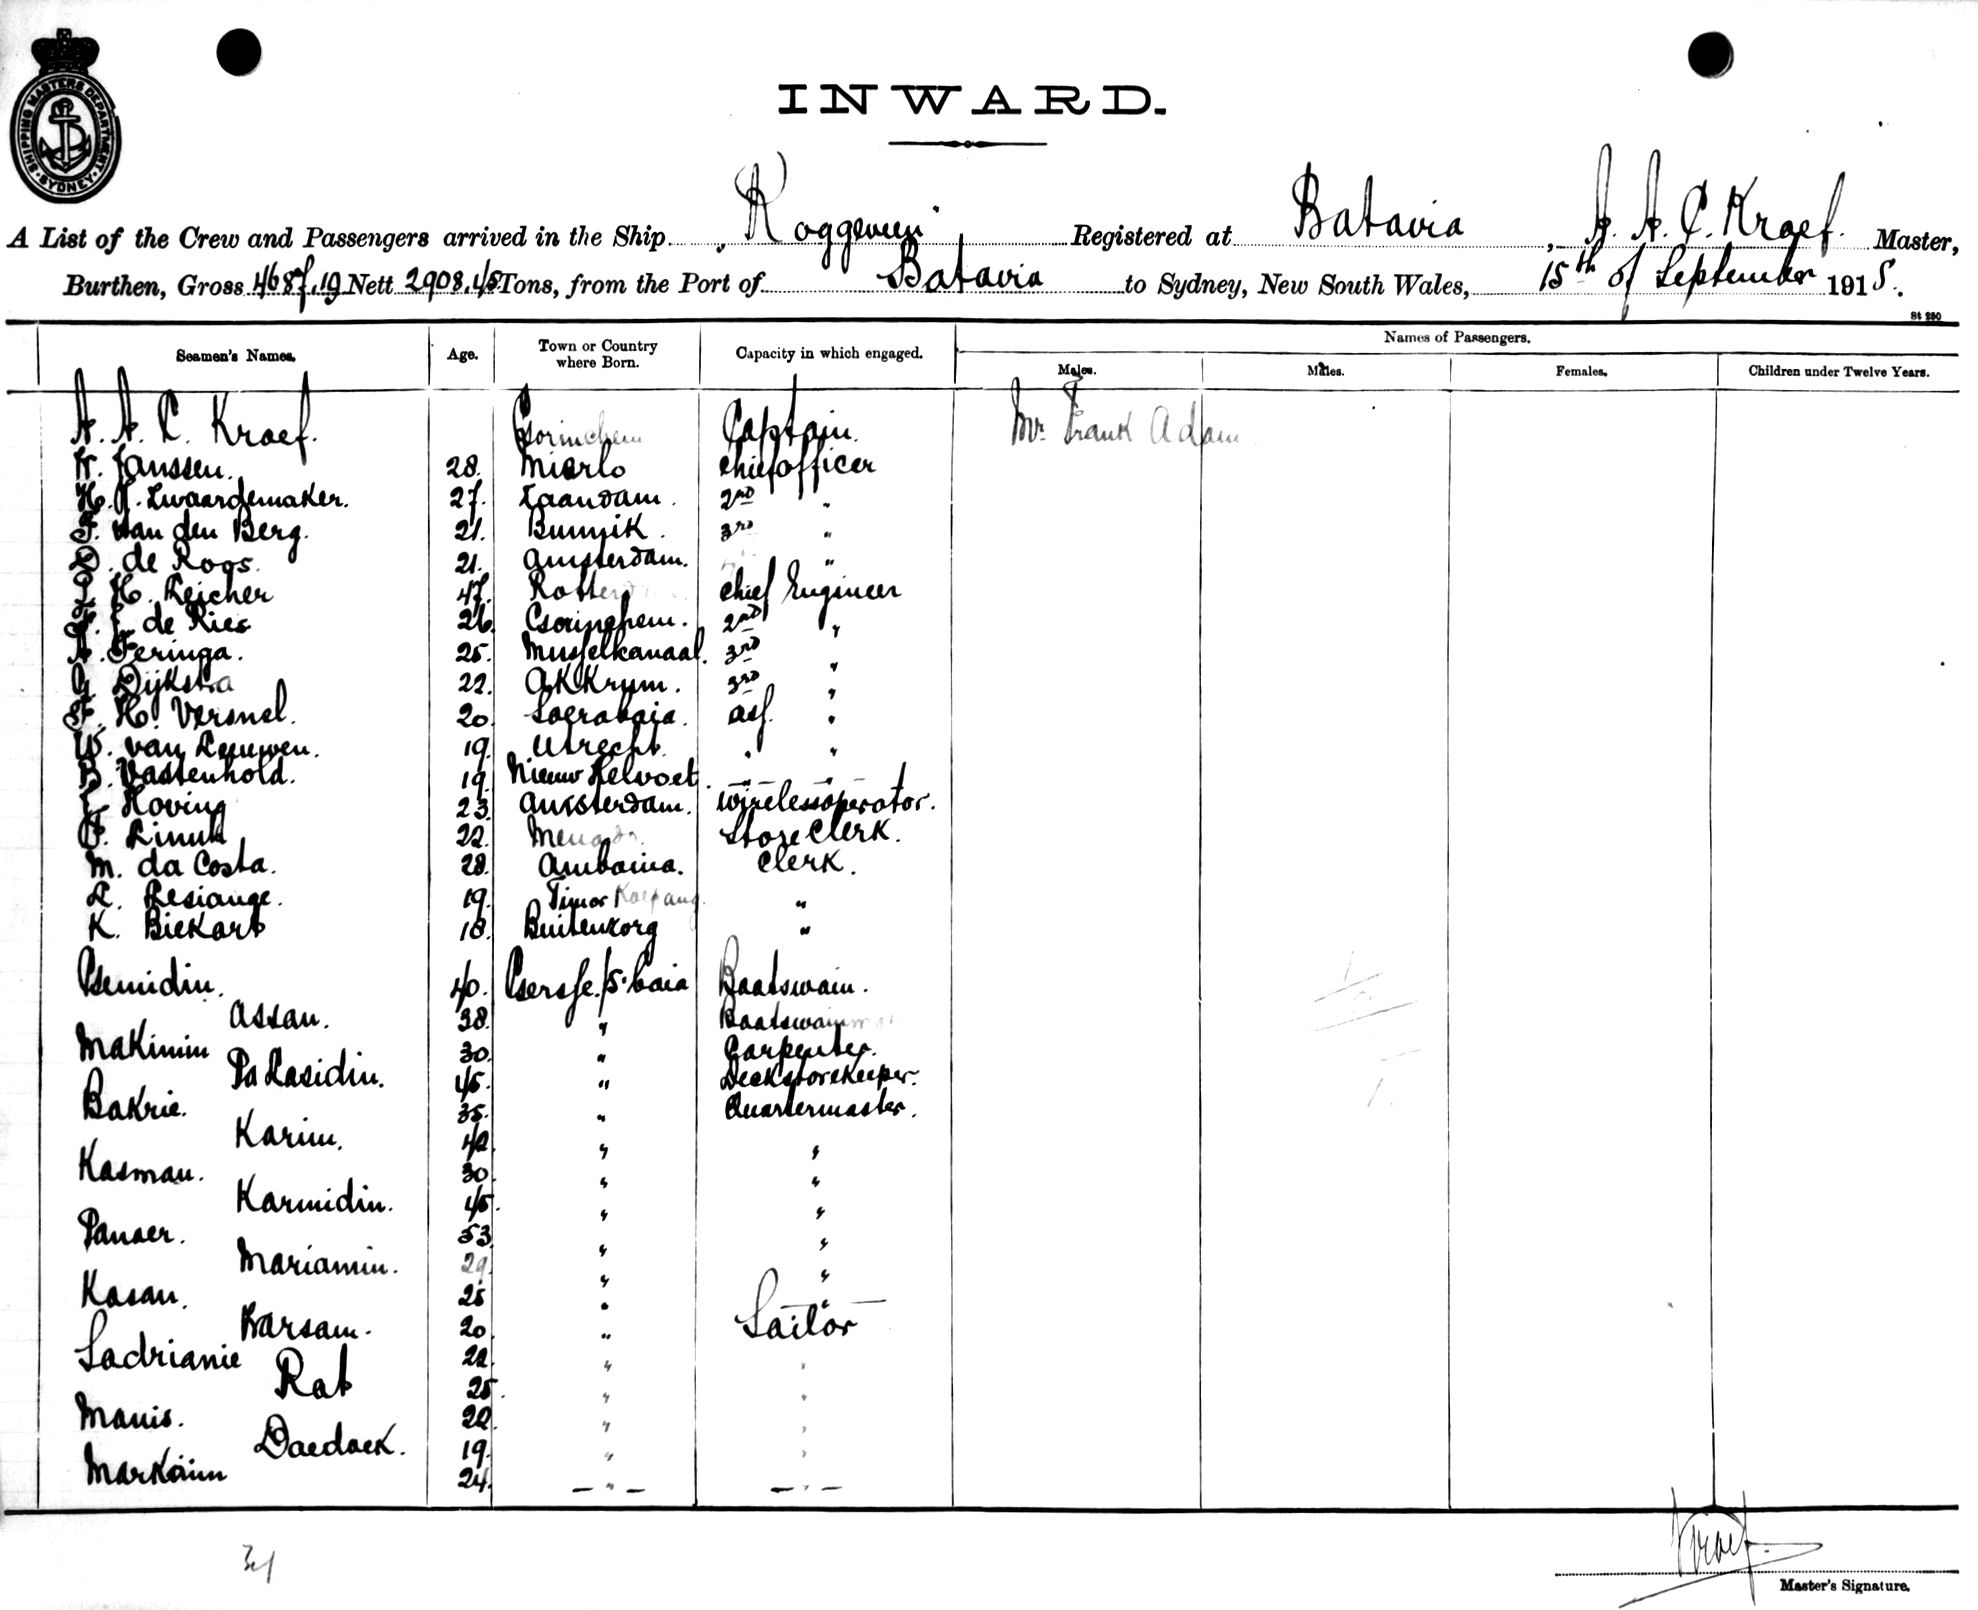 SHIPPING MASTERS DEPARTMENT SYDNEY
INWARD.
A List of the Crew and Passengers arrived in the Ship Roggeveen Registered at Batavia, A. A. C. Kraef. Master,
Burthen, Gross 4687.19 Nett 2908.45 Tons, from the Port of Batavia to Sydney, New South Wales, 15th of September 1915.
St 280
Seamen's Names. Age. Town or Country where Born. Capacity in which engaged. Names of Passengers.
Males. Males. Females. Children under Twelve Years.
A. A. C. Kraef. Gorinchem Captain. Mr. Frank Adam
Janssen. 28. Mierlo chiefofficer
Zwaardemaker. 27. Zaandam. 2nd "
F. van den Berg. 21. Bunnik. 3rd "
D. de Roos. 21. Amsterdam. "
H. Reicher 47. Rotter chief Engineer
de Ries 26. Goringhem. 2nd "
A. Feringa. 25. Musselkanaal. 3rd "
G Dijkstra 22. Akkrum. 3rd "
F. H. Versnel. 20. Soerabaia. ass. "
W. van Leeuwen. 19. Utrecht. " "
B. Vastenhold. 19. Nieuw Helvoet. " "
Hoving 23. Amsterdam. wirelessoperator.
22. Menado. Store Clerk.
M. da Costa. 28. Amboina. Clerk.
L. Lesiange. 19. Timor Koepang. "
K. Biekart 18. Buitenzorg "
Gemidin. 40. Gersse./S.baia Boatswain.
Assan. 38. " Boatswain
Makimin 30. " Carpenter.
Pa Rasidin. 45. " Deckstorekeeper.
Bakrie. 35. " Quartermaster.
Karim. 42. " "
Kasman. 30. " "
Karmidin. 45. " "
Panaer. 53. " "
Mariamin. 29. " "
Kasan. 25. " "
Karsam. 20. " Sailor
Sadrianie 22. " "
Rat 25. " "
Manis. 22. " "
Daedaek. 19. " "
Markaim 24. " "
34
Kraef.
Master's Signature.